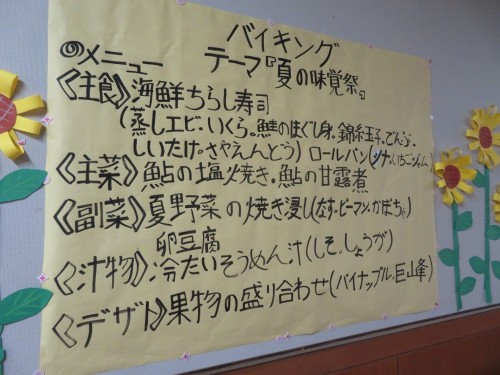 バイキング
のメニュー テーマ『夏の味覚祭』
《主食》海鮮ちらし寿司
(蒸しエビ・いくら・鮭のほぐし身・錦糸玉子・でんぶ・
しいたけ・さやえんどう) ロールパン(ツナ・いちごジャム)
《主菜》鮎の塩焼き・鮎の甘露煮
《副菜》夏野菜の焼き浸し(なす・ピーマン・かぼちゃ)
卵豆腐
《汁物》冷たいそうめん汁(しそ・しょうが)
《デザート》果物の盛り合わせ(パイナップル・巨山峰)